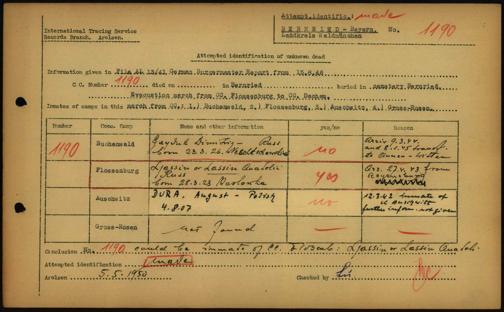 International Tracing Service
Records Branch, Arolsen.
Attempt.identific.: made
BERNRIED - Bayern. No. 1190
Landkreis Waldmünchen
Attempted identification of unknown dead
Information given in File AL 13/41 German Burgermaster Report from 15.6.46
C.C. Number 1190 died on - in Bernried buried in cemetery Bernried
Evacuation march from CC. Flossenburg to CC. Dachau.
Inmates of camps in this march from CC.: 1.) Buchenwald, 2.) Flossenburg, 3.) Auschwitz, 4.) Gross-Rosen.
Number Conc. Camp Name and other information yes/no Reason
1190
Buchenwald Dimitrij - Russ no Arriv. 9.3.44
born 22.3.26 and 8.1.45 transf.
Flossenburg Ljassin or Lassin Anatoli yes Arr. 27.4.43 from
Russ
born 28.3.23 Pavlovka
Auschwitz BURA, August - Polish no 12.3.42 inmate of
4.8.07 CC Auschwitz
further inform. not given
Gross-Rosen Not found
Conclusion No. 1190 could be inmate of CC. Flossenb.: Ljassin or Lassin Anatoli
Attempted identification made
Arolsen 5.5.1950 Checked by